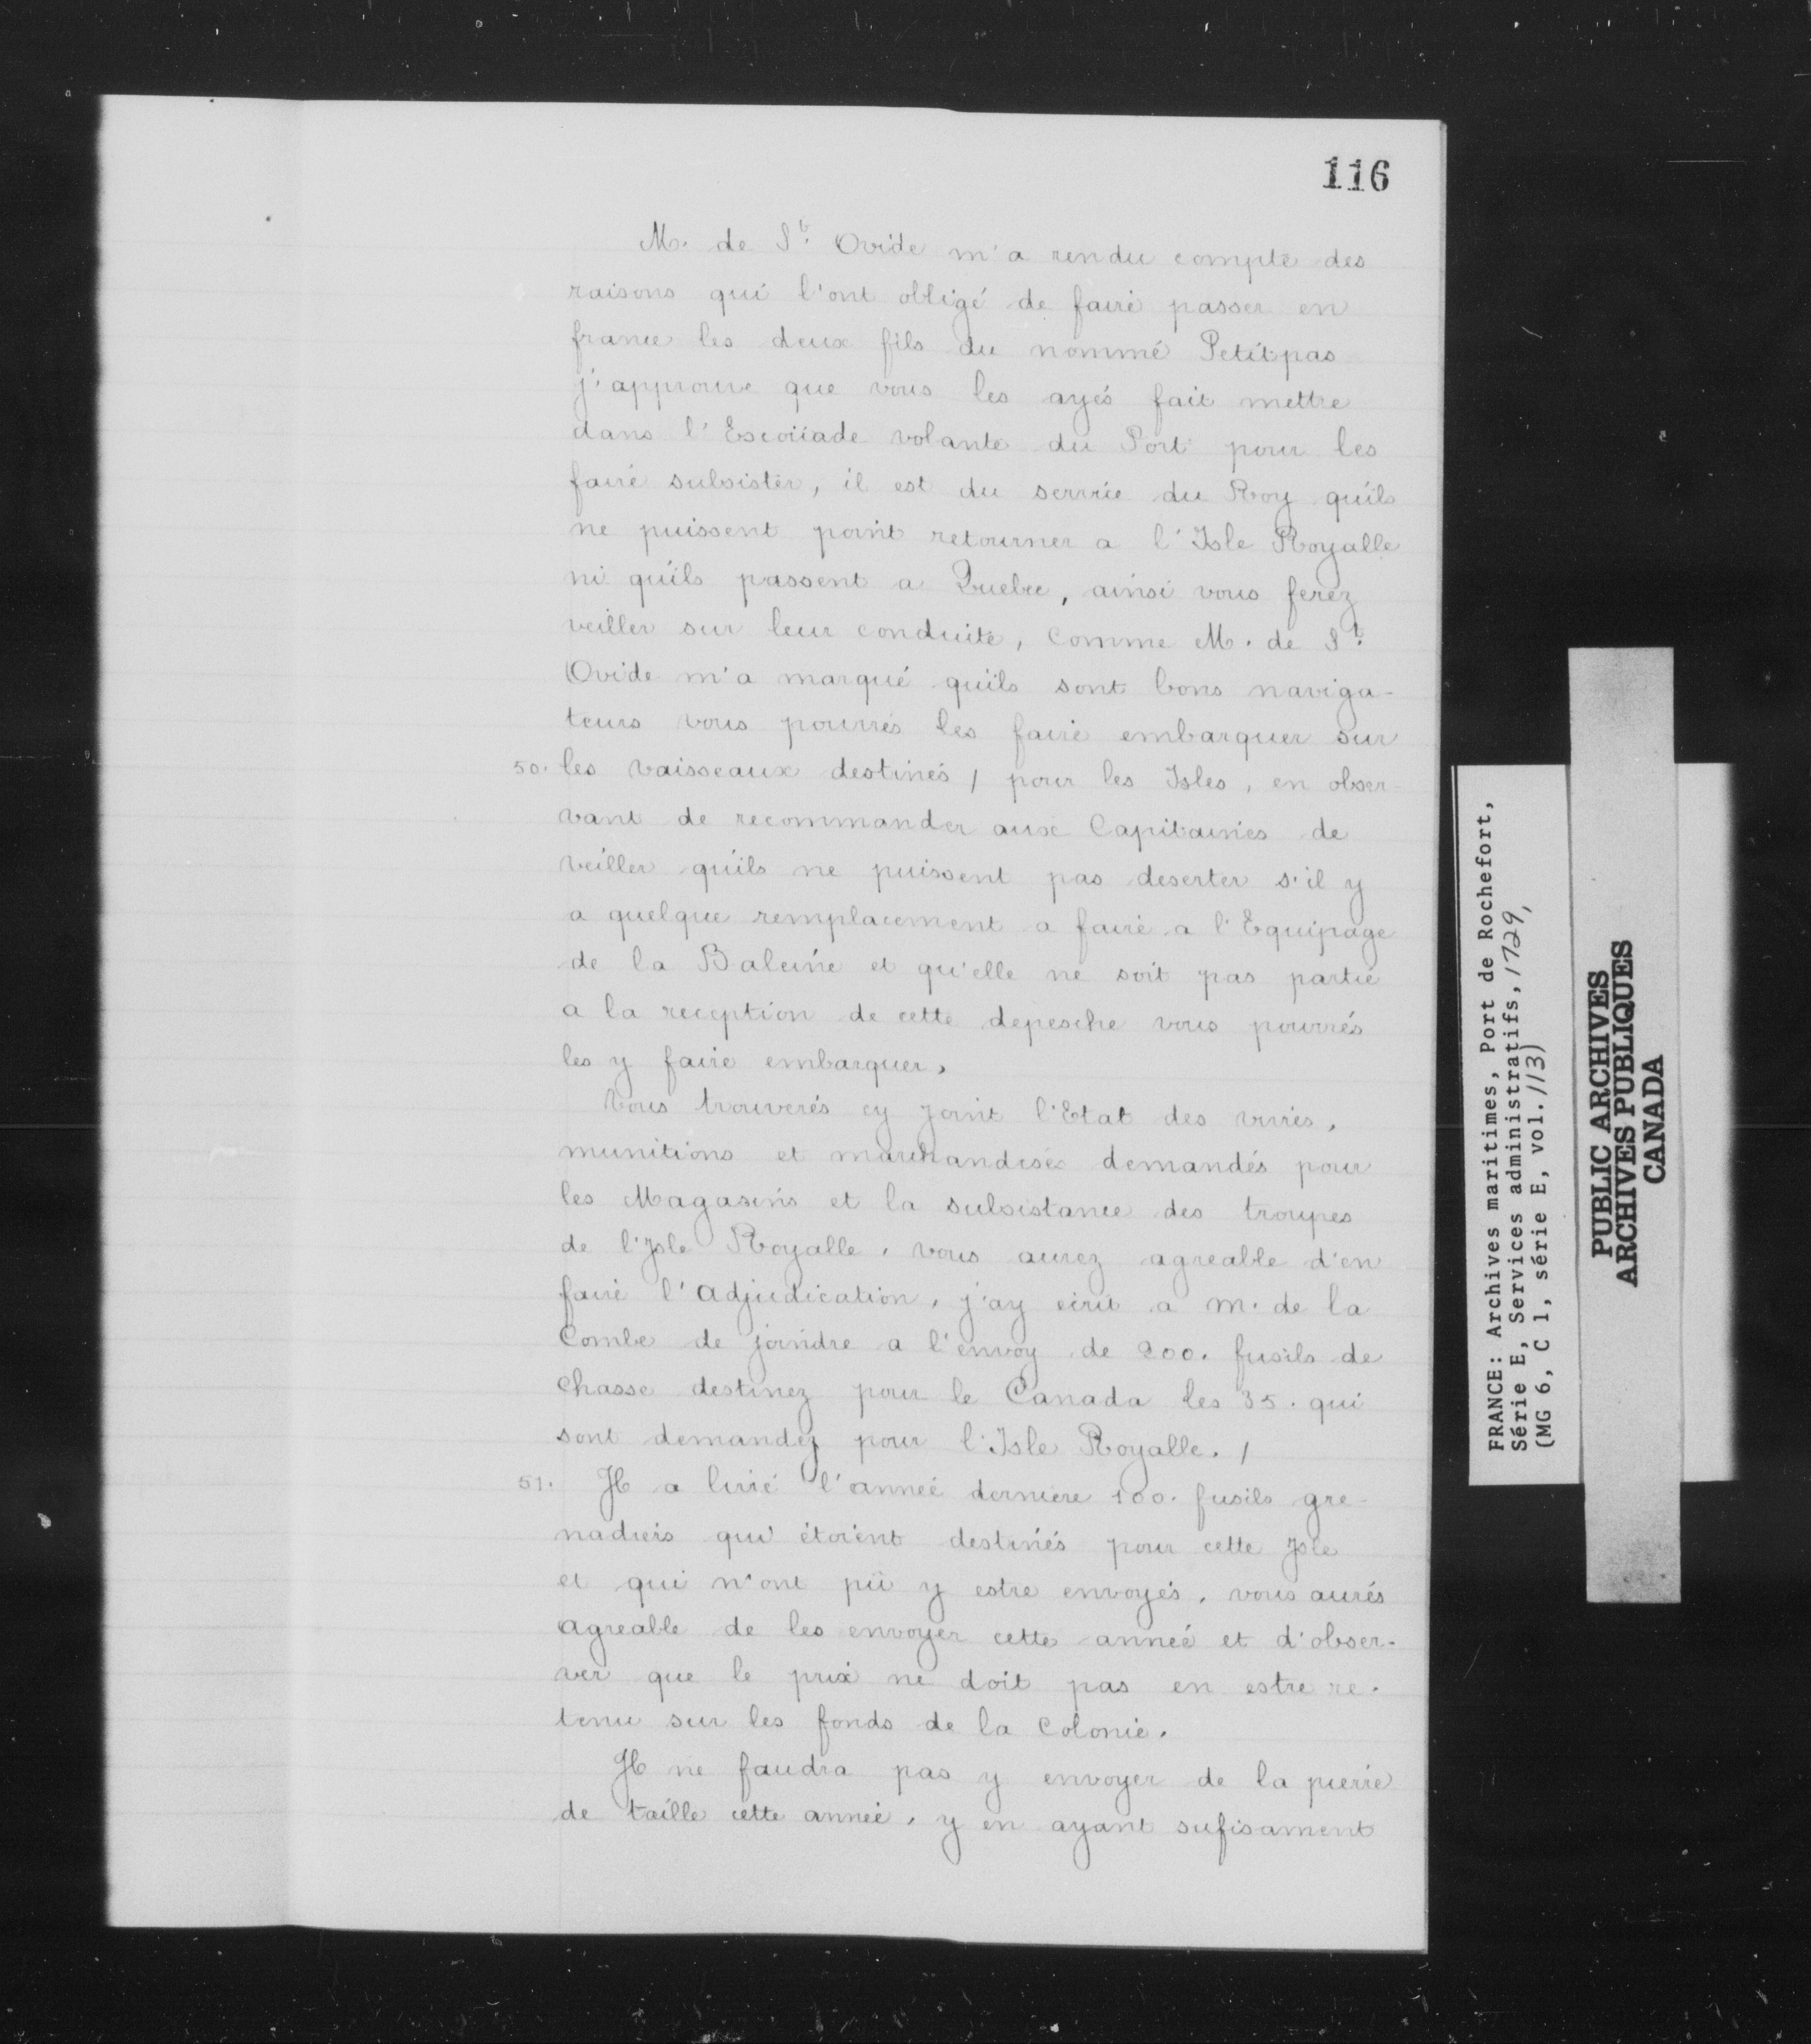 116
M. de St. Ovide m'a rendu compte des
raisons qui l'ont obligé de faire passer en
france les deux fils du nommé Petitpas
j'approuve que vous les ayés fait mettre
dans l'Escoüade volante du Port pour les
faire subsister, il est du service du Roy quils
ne puissent point retourner a l'Isle Royalle
ni quils passent a Quebec, ainsi vous ferez
veiller sur leur conduite, comme M. de St.
Ovide m'a marqué quils sont bons naviga-
teurs vous pourrés les faire embarquer sur
50. les vaisseaux destinés / pour les Isles, en obser-
vant de recommander aux Capitaines de
veiller quils ne puissent pas deserter s'il y
a quelque remplacement a faire a l'Equipage
de la Baleine et qu'elle ne soit pas partie
a la reception de cette depesche vous pourrés
les y faire embarquer.
Vous trouverés cy joint l'Etat des vivres,
munitions et marchandises demandés pour
les Magasins et la subsistance des troupes
de l'Isle Royalle, vous aurez agreable d'en
faire l'adjudication, j'ay ecrit a m. de la
Combe de joindre a l'envoy de 200. fusils de
chasse destinez pour le Canada les 35. qui
sont demandez pour l'Isle Royalle. /
51. Il a livré l'année derniere 100. fusils gre-
nadiers qui étoient destinés pour cette Isle
et qui n'ont pü y estre envoyés, vous aurés
agreable de les envoyer cette année et d'obser-
ver que le prix ne doit pas en estre re-
tenu sur les fonds de la Colonie.
Il ne faudra pas y envoyer de la pierre
de taille cette année, y en ayant sufisament
FRANCE: Archives maritimes, Port de Rochefort,
Série E, Services administratifs, 1729,
(MG 6, C 1, série E, vol. 113)
PUBLIC ARCHIVES
ARCHIVES PUBLIQUES
CANADA